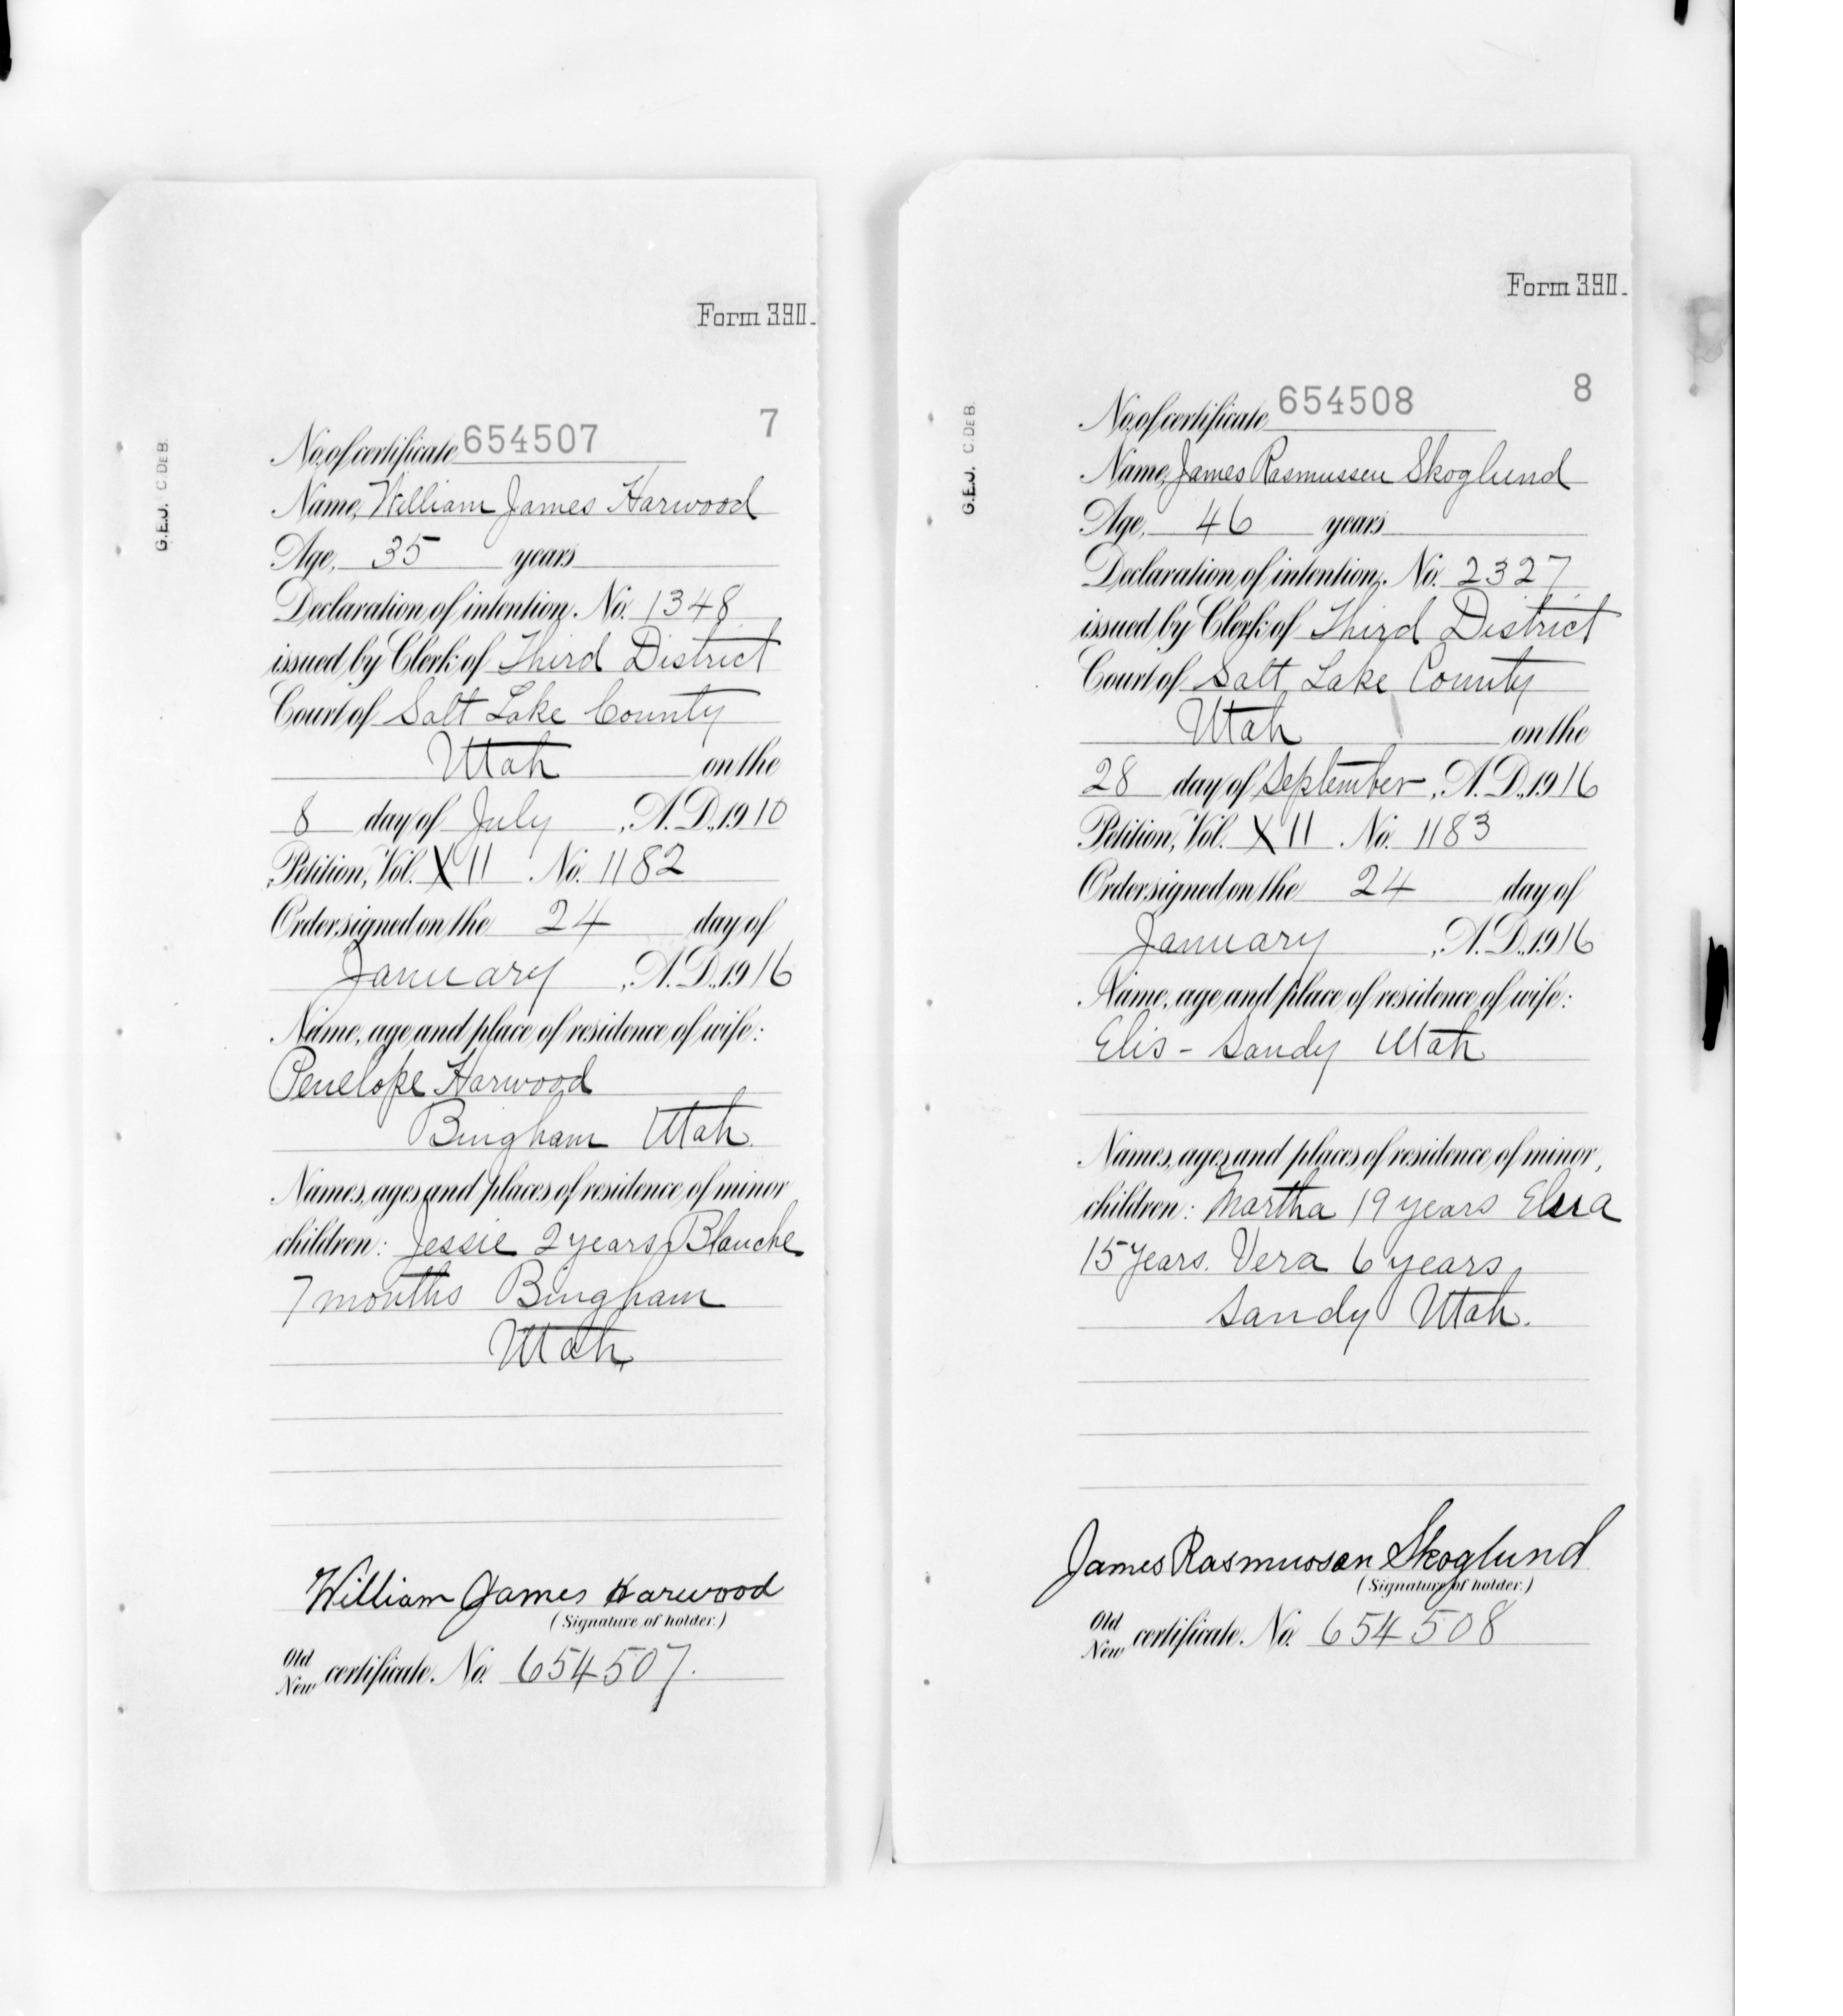 Form 390.
7
G.E.J. C.DEB.
No. of certificate 654507
Name, William James Harwood
Age, 35 years
Declaration of intention. No. 1348
issued by Clerk of Third District
Court of Salt Lake County
Utah on the
8 day of July, A. D., 1910
Petition, Vol. XII No. 1182
Order signed on the 24 day of
January, A. D., 1916
Name, age and place of residence of wife:
Penelope Harwood
Bingham Utah.
Names, ages and places of residence of minor
children: Jessie 2 years Blanche
7 months Bingham
Utah
William James Harwood
(Signature of holder.)
Old
New certificate. No. 654507.
Form 390.
8
G.E.J. C.DEB.
No. of certificate 654508
Name, James Rasmussen Skoglund
Age, 46 years
Declaration of intention. No. 2327
issued by Clerk of Third District
Court of Salt Lake County
Utah on the
28 day of September, A. D., 1916
Petition, Vol. XII No. 1183
Order signed on the 24 day of
January, A. D., 1916
Name, age and place of residence of wife:
Elis - Sandy Utah
Names, ages and places of residence of minor
children: Martha 19 years
15 years. Vera 6 years,
Sandy Utah.
James Rasmussen Skoglund
(Signature of holder.)
Old
New certificate. No. 654508